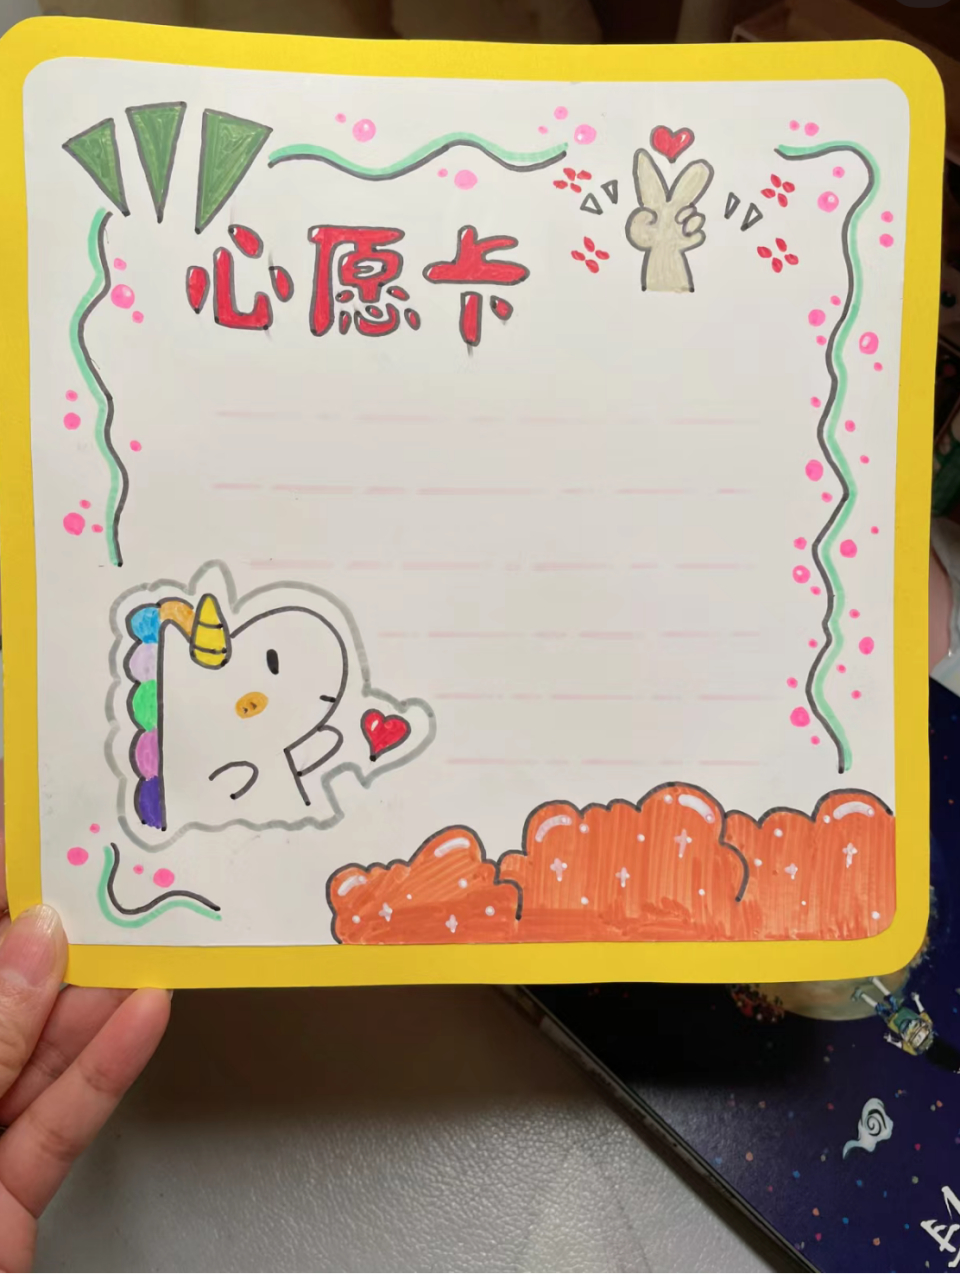 心愿卡